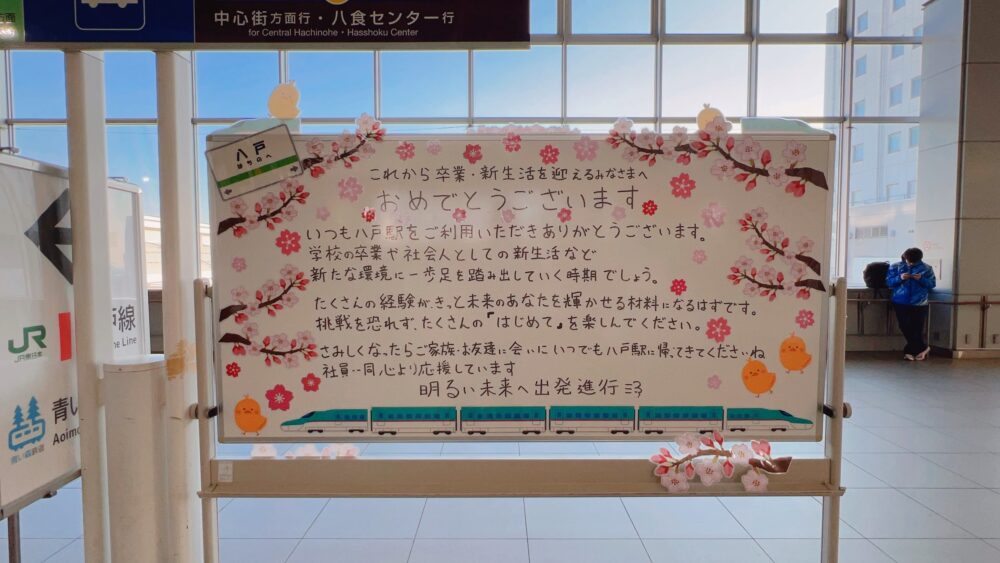 中心街方面行・八食センター行
for Central Hachinohe・Hasshoku Center
八戸
はちのへ
これから卒業・新生活を迎えるみなさまへ
おめでとうございます
いつも八戸駅をご利用いただきありがとうございます。
学校の卒業や社会人としての新生活など
新たな環境に一歩足を踏み出していく時期でしょう。
たくさんの経験が、きっと未来のあなたを輝かせる材料になるはずです。
挑戦を恐れず、たくさんの『はじめて』を楽しんでください。
さみしくなったらご家族・お友達に会いにいつでも八戸駅に帰ってきてくださいね
社員一同心より応援しています
明るい未来へ出発進行
JR
JR東日本
戸線
ne Line
青い
Aoimo
青い森鉄道